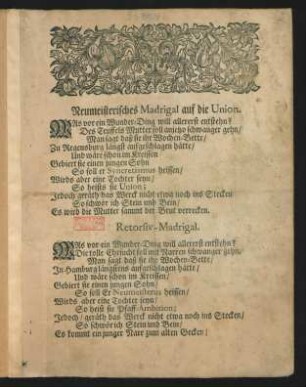 Neumeisterisches Madrigal auf die Union.
WAs vor ein Wunder-Ding will allererst entstehn?
Des Teuffels Mutter soll anietzo schwanger gehn/
Man sagt daß sie ihr Wochen-Bette/
Zu Regenspurg längst aufgeschlagen hätte/
Und wäre schon im Kreissen
Gebiert sie einen jungen Sohn
So soll er Syncretismus heissen/
Wirds aber eine Tochter seyn/
So heists sie Union;
Jedoch geräth das Werck nicht etwa noch ins Stecken
So schwör ich Stein und Bein/
Es wird die Mutter sammt der Brut verrecken.
Retorsiv-Madrigal.
WAs vor ein Wunder-Ding will allererst entstehn?
Die tolle Ehrsucht soll mit Narren schwanger gehn/
Man sagt daß sie ihr Wochen-Bette/
In Hamburg längstens aufgeschlagen hätte/
Und wäre schon im Kreissen/
Gebiert sie einen jungen Sohn/
So soll Er Neumeisterus heissen/
Wirds aber eine Tochter seyn/
So heist sie Pfaff-Ambition;
Jedoch/ geräth das Werck nicht etwa noch ins Stecken/
So schwör ich Stein und Bein/
Es kommt ein junger Narr zum alten Gecken/